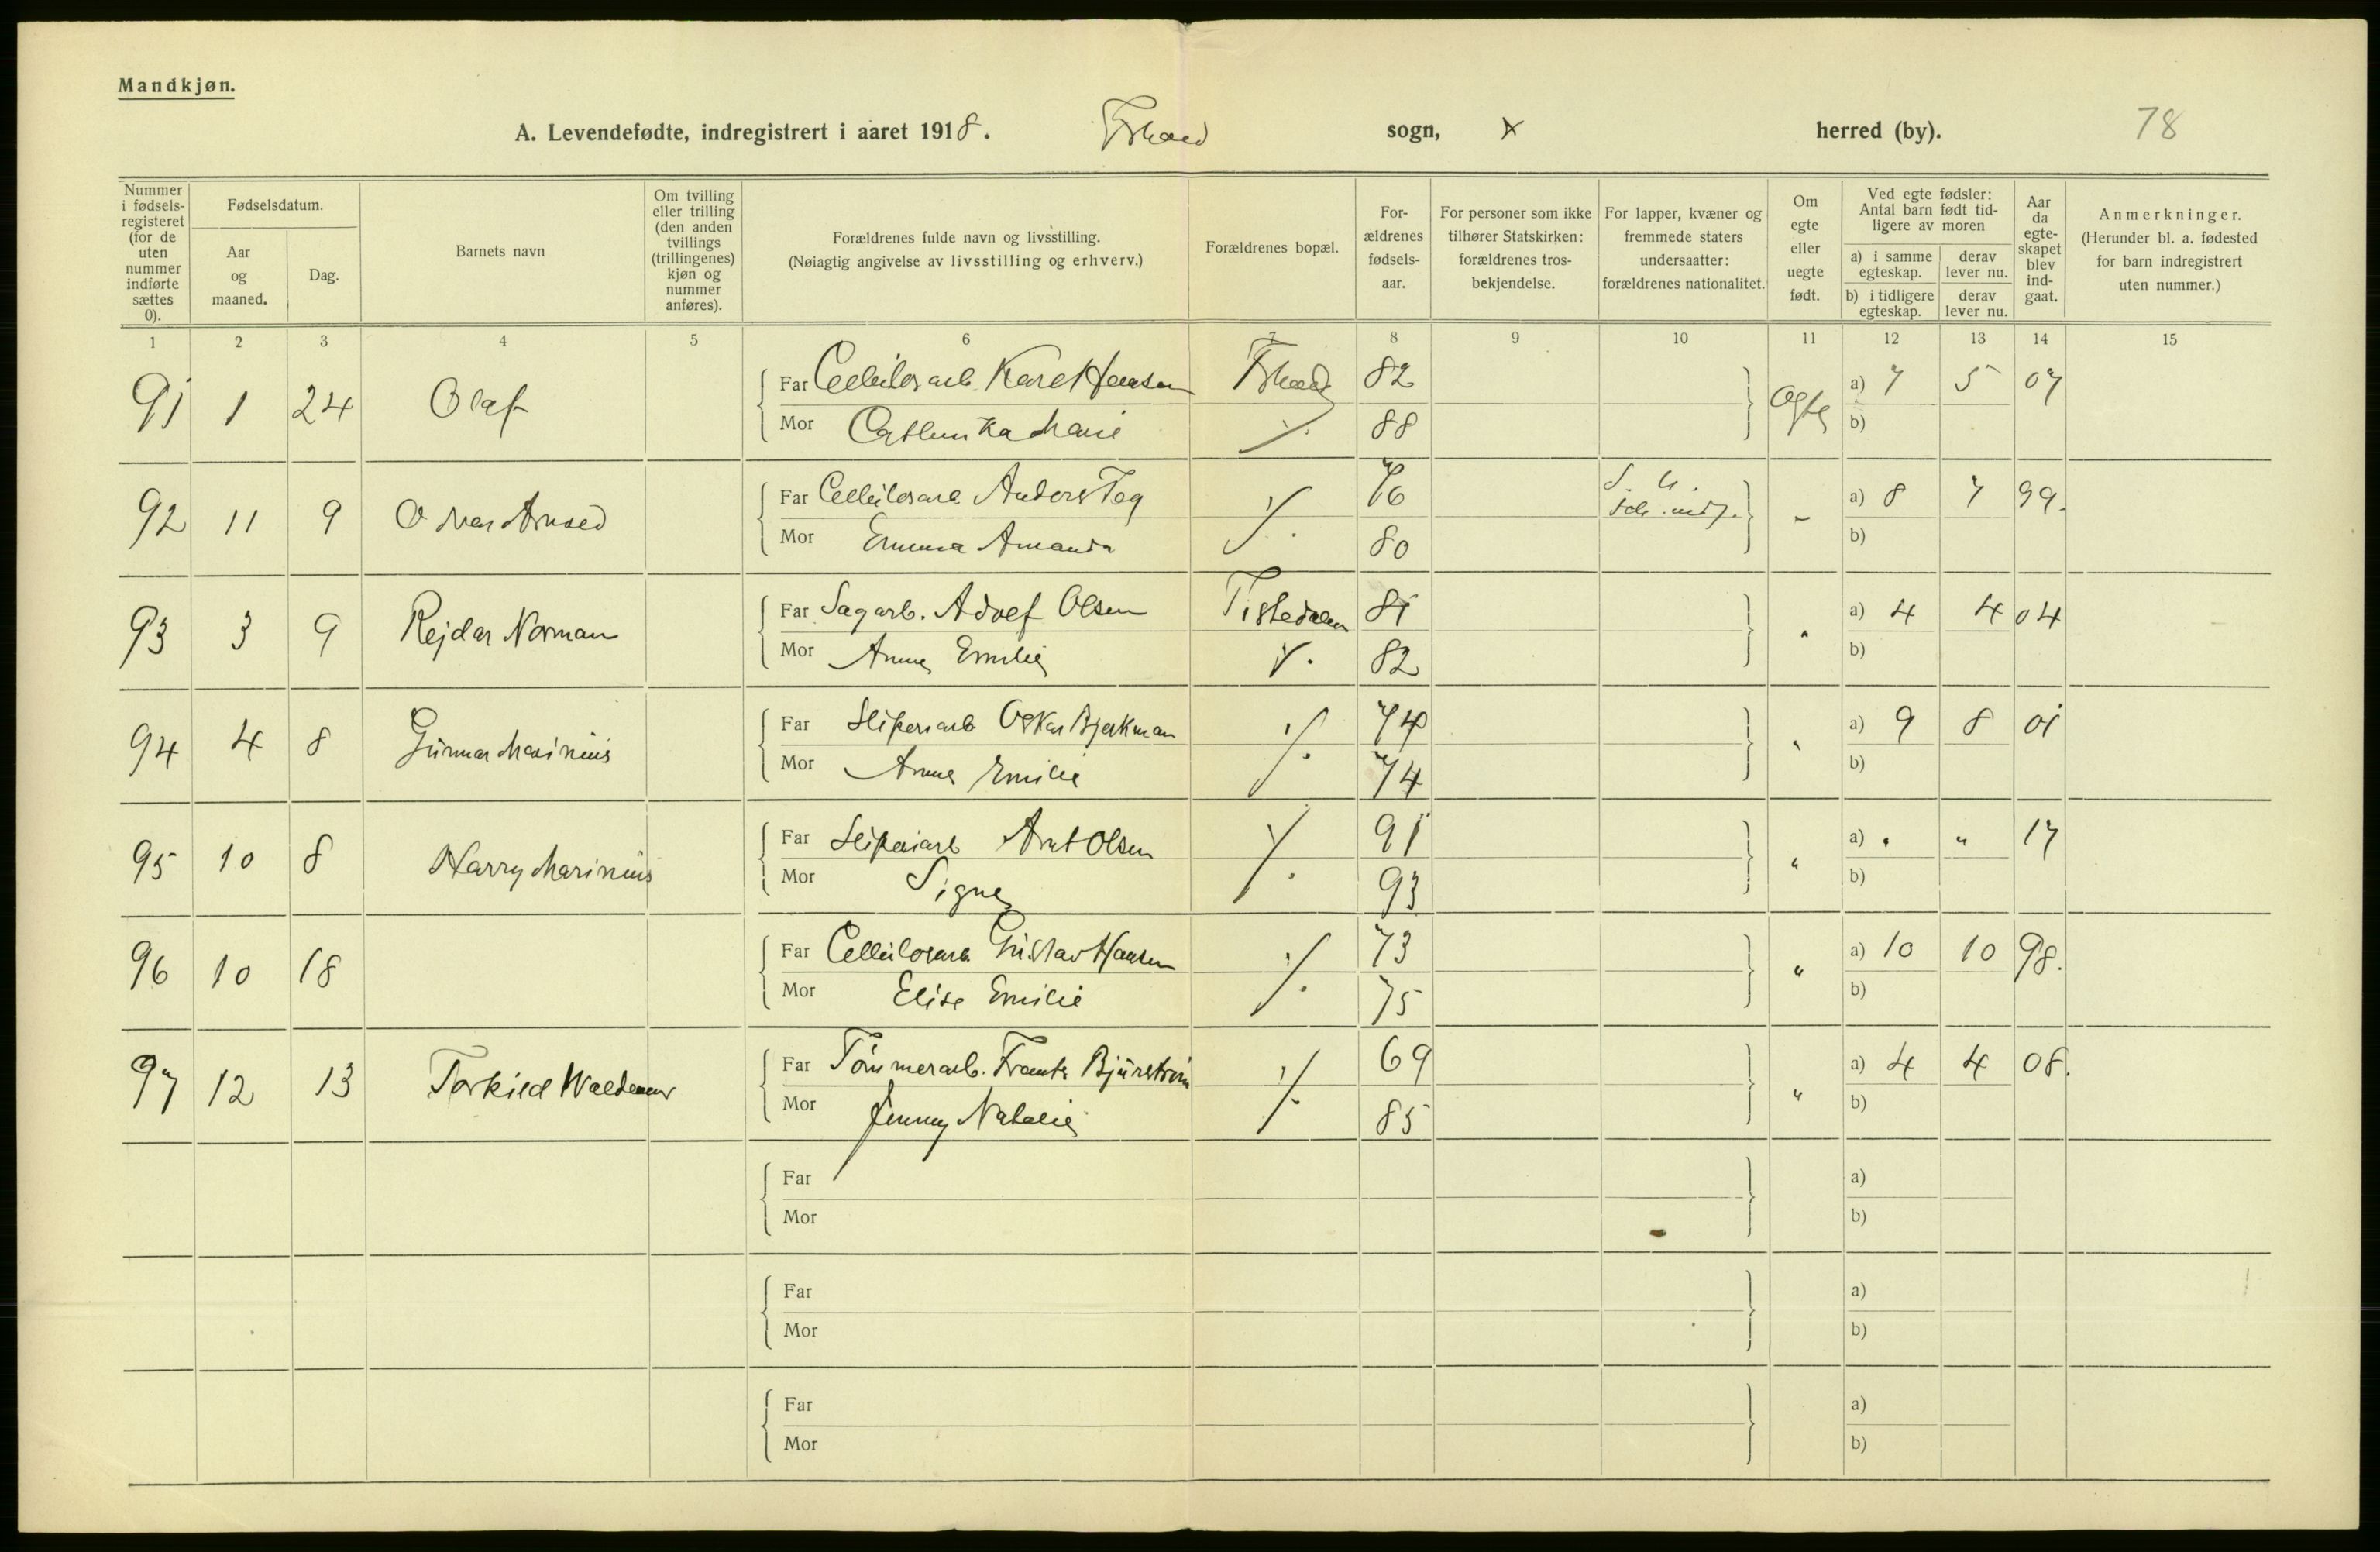 Mandkjøn.
A. Levendefødte, indregistrert i aaret 1918. sogn, x herred (by). 78
Nummer i fødsels-registeret (for de uten nummer indførte sættes 0).
Fødselsdatum.
Aar og maaned.
Dag.
Barnets navn
Om tvilling eller trilling (den anden tvillings (trillingenes) kjøn og nummer anføres).
Forældrenes fulde navn og livsstilling.
(Nøiagtig angivelse av livsstilling og erhverv.)
Forældrenes bopæl.
For-ældrenes fødsels-aar.
For personer som ikke tilhører Statskirken: forældrenes tros-bekjendelse.
For lapper, kvæner og fremmede staters undersaatter: forældrenes nationalitet.
Om egte eller uegte født.
Ved egte fødsler: Antal barn født tid-ligere av moren
a) i samme egteskap. derav lever nu.
b) i tidligere egteskap. derav lever nu.
Aar da egte-skapet blev ind-gaat.
Anmerkninger.
(Herunder bl. a. fødested for barn indregistrert uten nummer.)
1 2 3 4 5 6 7 8 9 10 11 12 13 14 15
91 1 24 Olaf Far Hansen 82 a) 7 5 07
Mor 88 b)
92 11 9 Far Anders 76 - a) 8 7 99.
Mor Emma Amanda 80 b)
93 3 9 Rejdar Norman Far Sagarb. Adolf Olsen Tistedalen 81 " a) 4 4 04
Mor Anna Emilie 82 b)
94 4 8 Gunnar Marinius Far Sliperiarb Oskar Bjerkman 74 " a) 9 8 01
Mor Anna Emilie 74 b)
95 10 8 Harry Marinius Far Sliperiarb Arnt Olsen 91 " a) " " 17
Mor Signe 93 b)
96 10 18 Far Cellulosearb. Gustav Hansen 73 " a) 10 10 98.
Mor Elise Emilie 75 b)
97 12 13 Torkild Waldemar Far Tømmerarb. Frants Bjurstrøm 69 " a) 4 4 08.
Mor Jenny Natalie 85 b)
Far a)
Mor b)
Far a)
Mor b)
Far a)
Mor b)